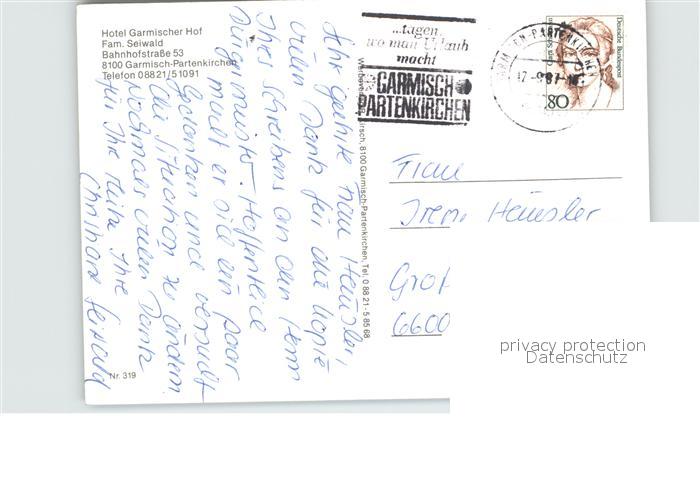 Hotel Garmischer Hof
Fam. Seiwald
Bahnhofstraße 53
8100 Garmisch-Partenkirchen
Telefon 08821/51091
Sehr geehrte Frau Häusler,
vielen Dank für die Kopie
Ihres Schreibens an den Herrn
Bürgermeister. Hoffentlich
macht er sich ein paar
Gedanken und versucht
die Situation zu ändern.
Nochmals vielen Dank
für Ihre Ihre
Christiane Seiwald
Nr. 319
8100 Garmisch-Partenkirchen, Tel. 0 88 21 - 5 85 68
...tagen,
wo man Urlaub
macht
GARMISCH
PARTENKIRCHEN
GARMISCH-PARTENKIRCHEN
Deutsche Bundespost
80
Frau
Irene Häusler
6600
privacy protection
Datenschutz